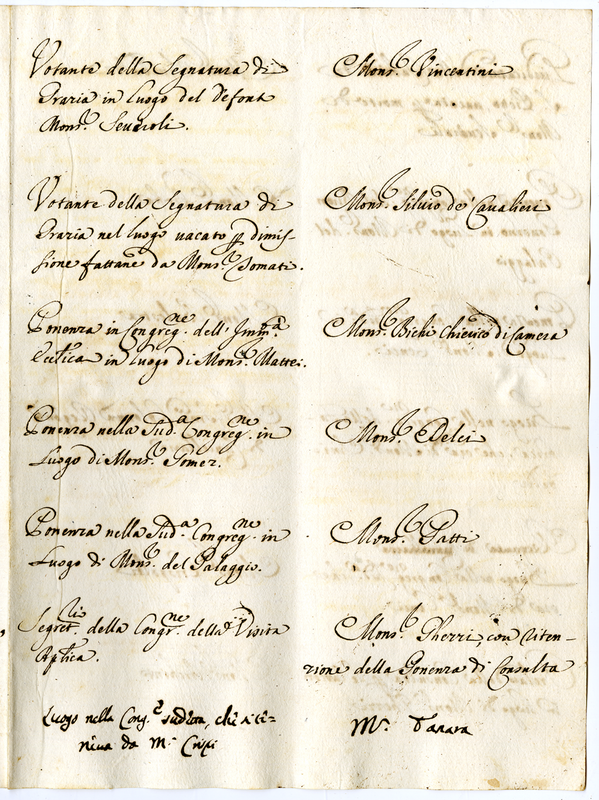 Votante della Segnatura di
Grazia in luogo del Defont
Mons.r Seuaroli.
Mons.r Vincentini
Votante della Segnatura di
Grazia nel luogo uacato p dimis-
sione fattane da Mons.r Somati.
Mons.r Siluio de' Caualieri
Ponenza in Congreg.ne dell' Imm.tà
Eccl.tica in luogo di Mons.r Mattei.
Mons.r Bichi Chierico di Camera
Ponenza nella Sud.a Congreg.ne in
Luogo di Mons.r Gomez.
Mons.r Delci
Ponenza nella Sud.a Congreg.ne in
Luogo di Mons.r del Palaggio.
Mons.r Patti
Segret.li della Congr.ne della Visita
Aptica.
Mons.r Gherri, con riten-
zione della Ponenza di Consulta
Luogo nella Cong.e sud.ta, che si te-
niua da M.r Crispi
M.r Tanara